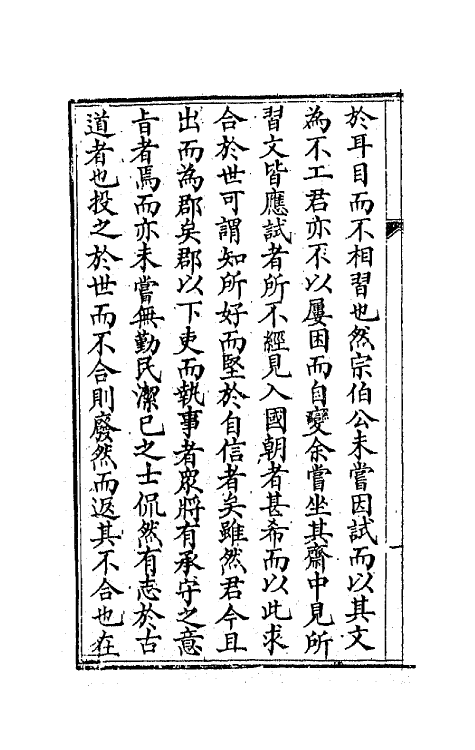 於耳目而不相習也然宗伯公未嘗因試而以其文
為不工君亦不以屢困而自變余嘗坐其齋中見所
習文皆應試者所不經見入國朝者甚希而以此求
合於世可謂知所好而堅於自信者矣雖然君今且
出而為郡矣郡以下吏而執事者眾將有承守之意
旨者焉而亦未嘗無勤民潔己之士侃然有志於古
道者也投之於世而不合則廢然而返其不合也在